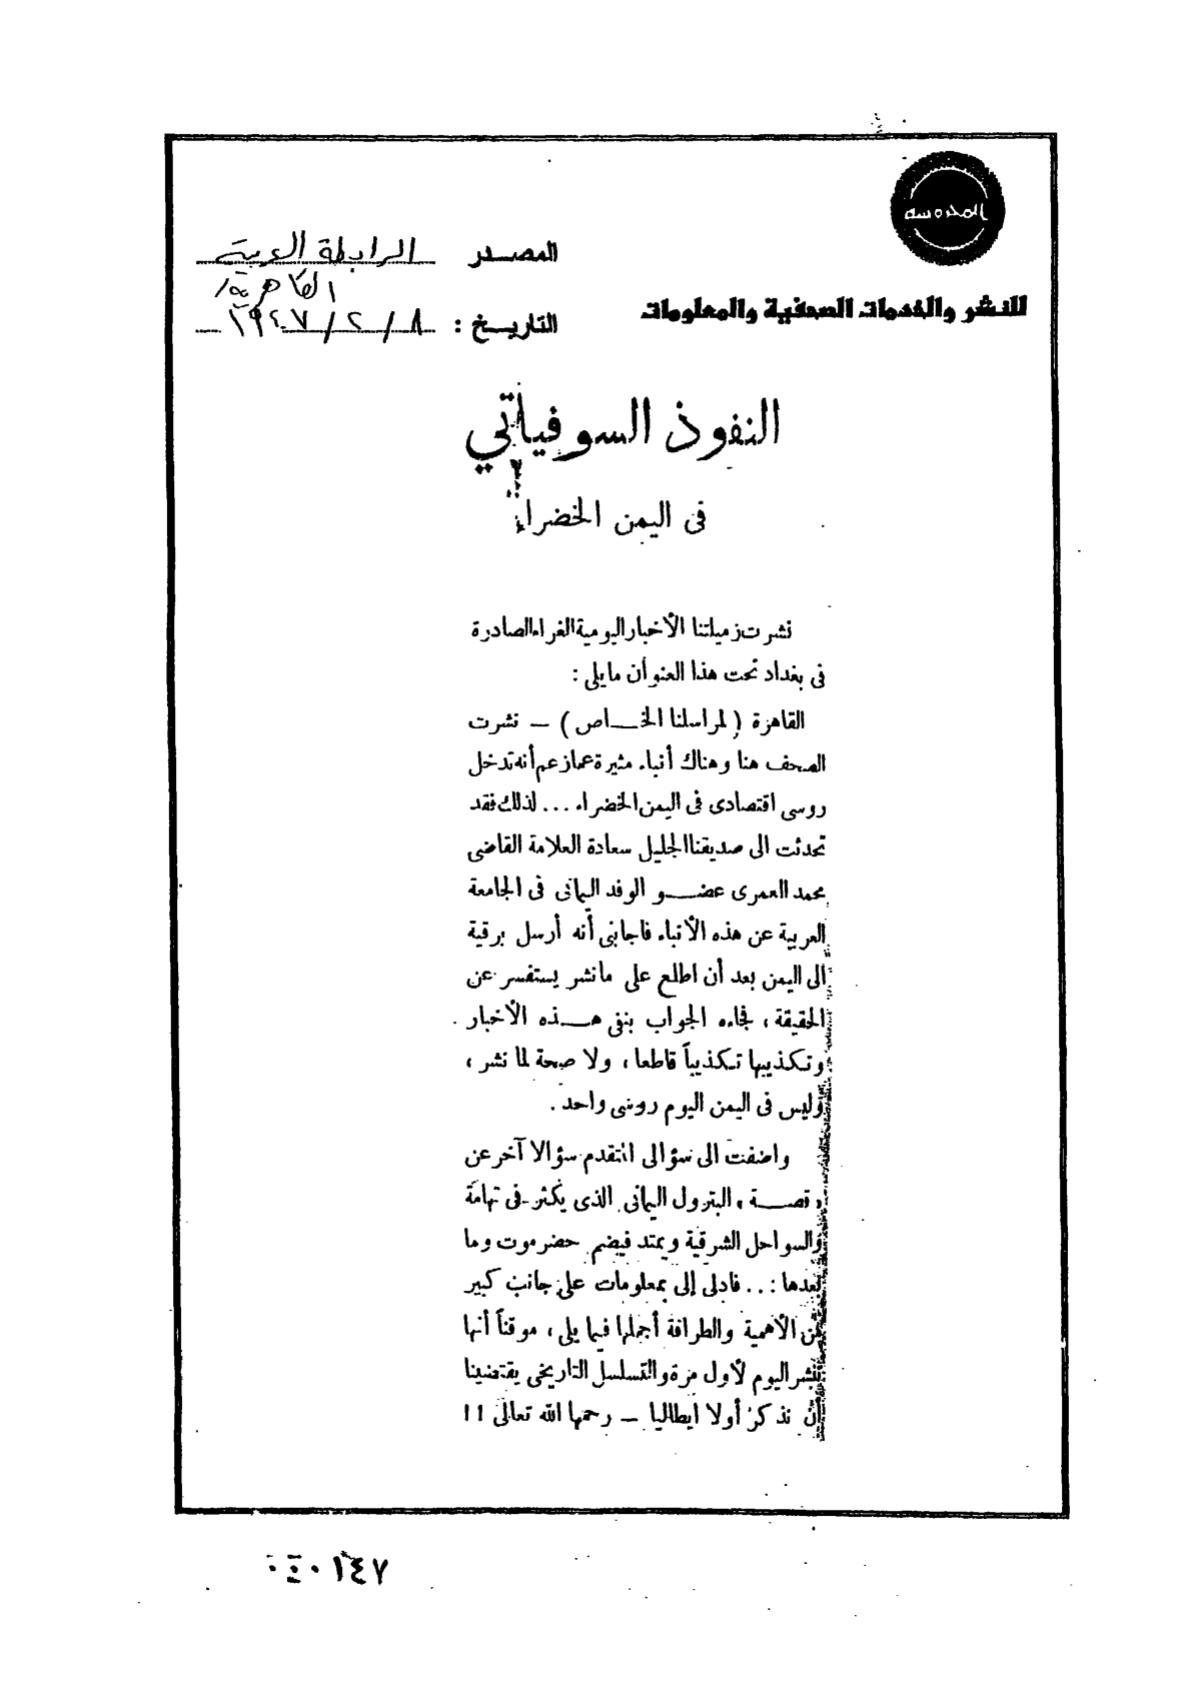 المحروسة
للنشر والخدمات الصحفية والمعلومات
المصدر الرابطة العربية
القاهرية
التاريخ : ٨/ ٢/ ١٩٤٧
النفوذ السوفياتي
فى اليمن الخضراء
نشرت زميلتنا الأخبار اليومية الغراء الصادرة
فى بغداد تحت هذا العنوان مايلى :
القاهرة ( لمراسلنا الخـــاص ) — نشرت
الصحف هنا وهناك أنباء مثيرة عما زعم أنه تدخل
روسى اقتصادى فى اليمن الخضراء ... لذلك فقد
تحدثت الى صديقنا الجليل سعادة العلامة القاضى
محمد العمرى عضــو الوفد اليمانى فى الجامعة
العربية عن هذه الأنباء فاجابنى أنه أرسل برقية
الى اليمن بعد أن اطلع على مانشر يستفسر عن
الحقيقة ، فجاءه الجواب بنفى هــذه الأخبار
وتكذيبها تكذيباً قاطعا ، ولا صحة لما نشر ،
وليس فى اليمن اليوم روسى واحد .
واضفت الى سؤالى المتقدم سؤالا آخر عن
« قصــة » البترول اليمانى الذى يكثر فى تهامة
والسواحل الشرقية ويمتد فيضم حضرموت وما
بعدها : .. فادلى إلى بمعلومات على جانب كبير
من الأهمية والطرافة أجملها فيما يلى ، موقناً أنها
تنشر اليوم لأول مرة والتسلسل التاريخى يقتضينا
أن نذكر أولا ايطاليا — رحمها الله تعالى !!
١٤٧